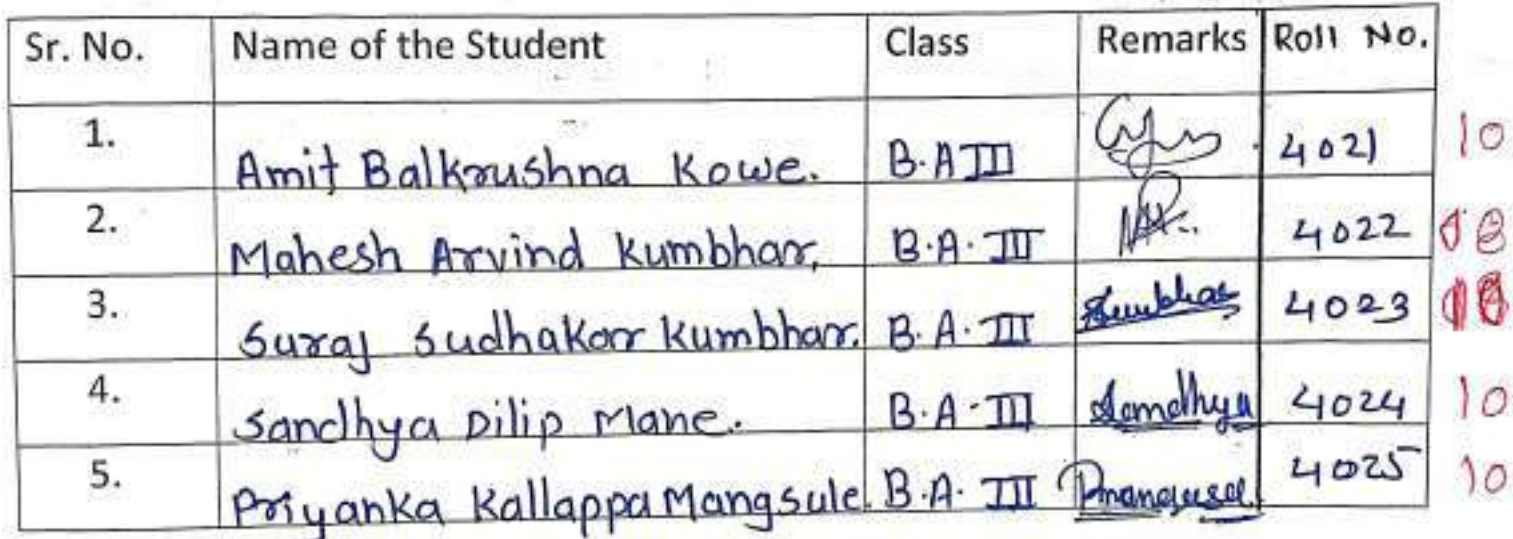 Sr. No. Name of the Student Class Remarks Roll No.
1. Amit Balkrushna Kowe. B.A III 4021 10
2. Mahesh Arvind Kumbhar, B.A. III 4022
3. Suraj Sudhakar Kumbhar. B.A. III Kumbhar 4023
4. Sandhya Dilip Mane. B.A. III Sandhya 4024 10
5. Priyanka Kallappa Mangsule. B.A. III 4025 10